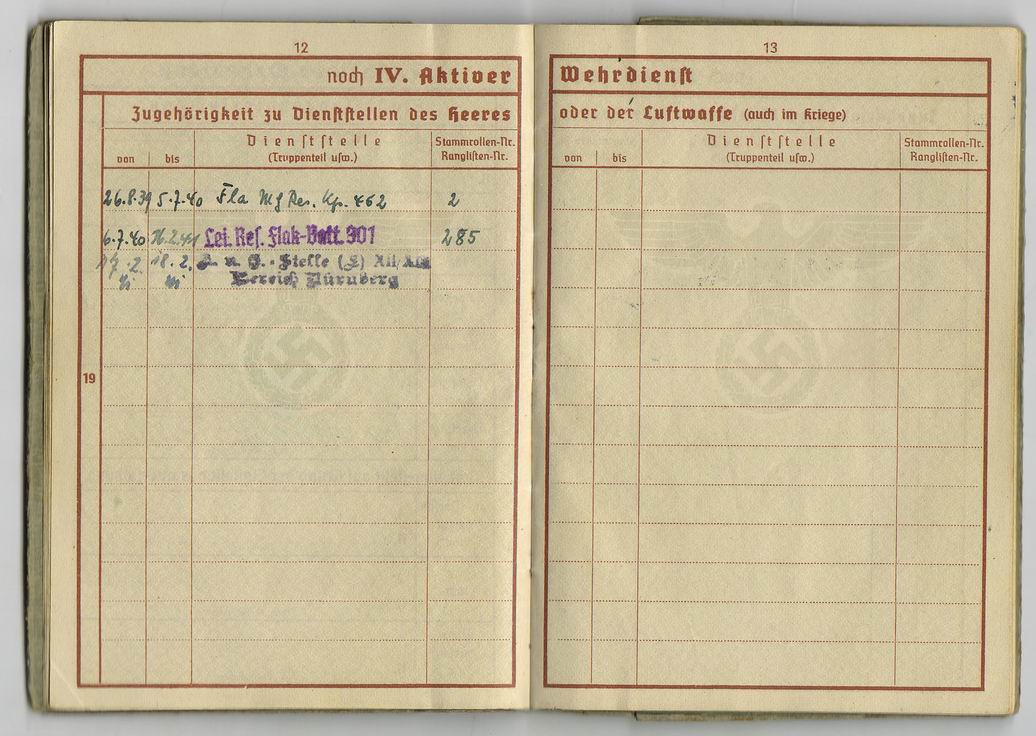 12
noch IV. Aktiver
Zugehörigkeit zu Dienststellen des Heeres
von bis Dienststelle (Truppenteil usw.) Stammrollen-Nr. Ranglisten-Nr.
26.8.39 5.7.40 Fla Mg Res. Kp. 462 2
6.7.40 16.2.41 Lei. Res. Flak-Batt. 901 285
17.2. 18.2. A. u. E.-Stelle (L)
41 41 Bereich Nürnberg
19
13
Wehrdienst
oder der Luftwaffe (auch im Kriege)
von bis Dienststelle (Truppenteil usw.) Stammrollen-Nr. Ranglisten-Nr.